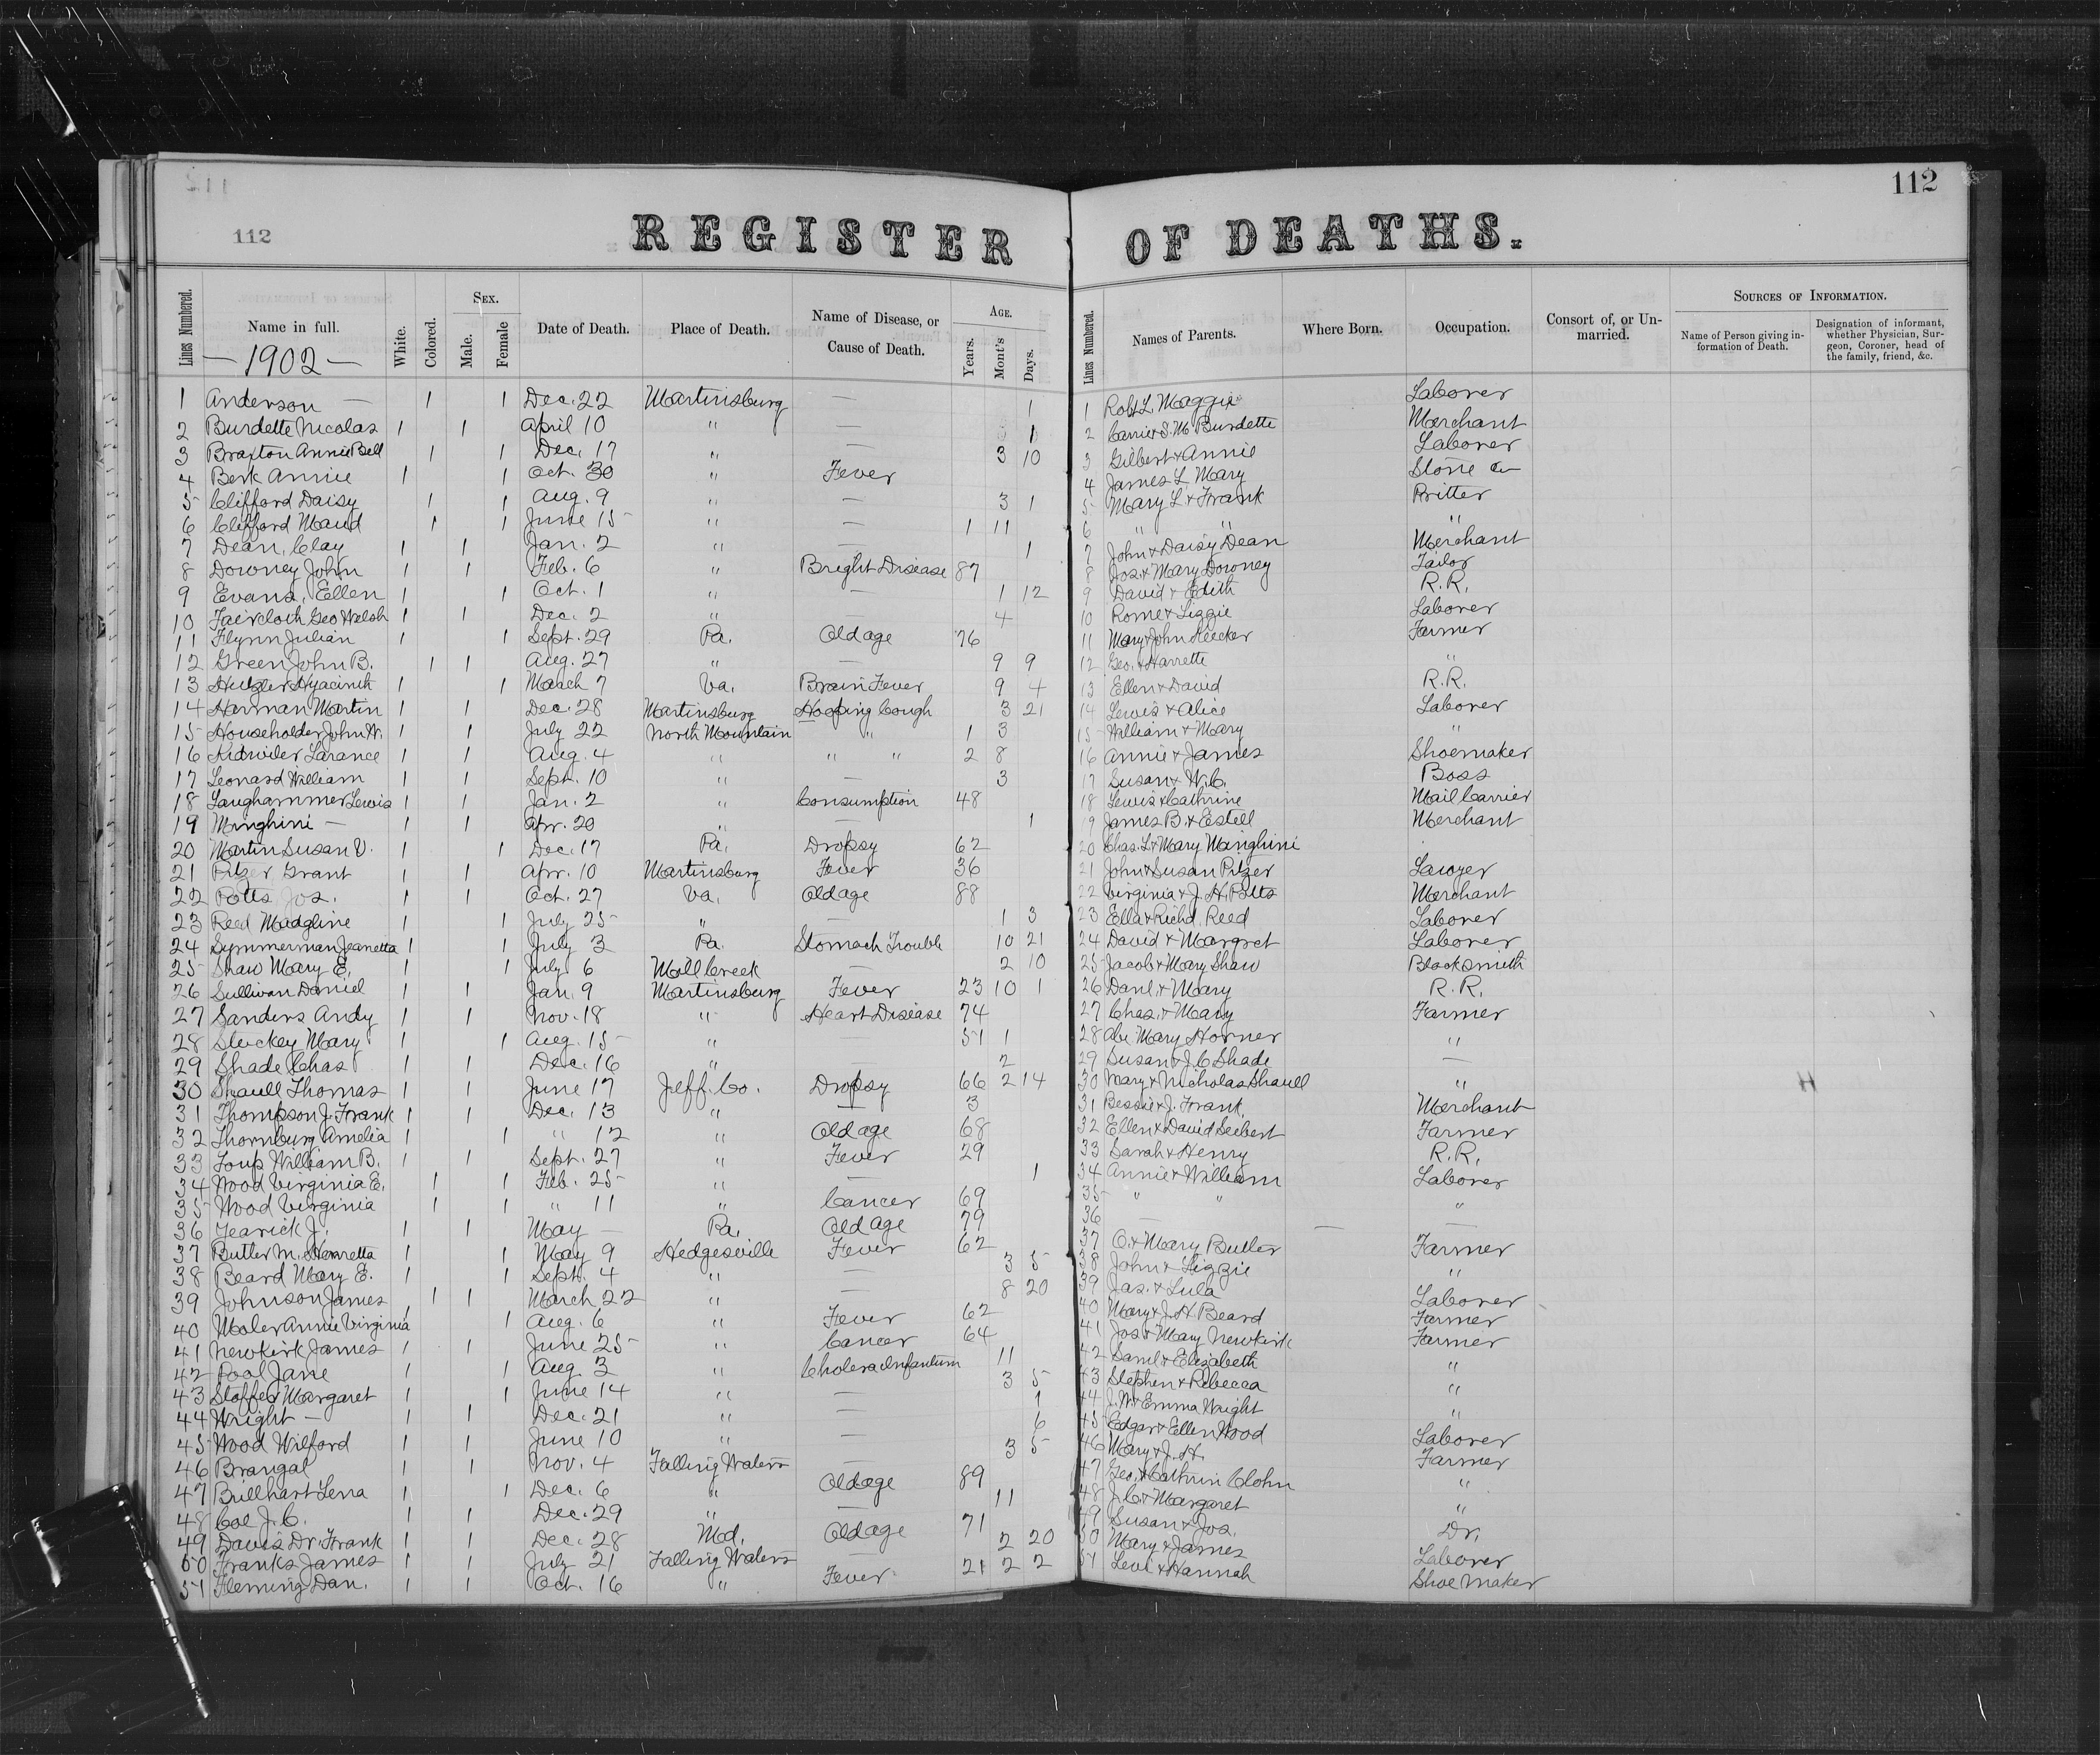 112
112
REGISTER OF DEATHS.
Lines Numbered. Name in full. White. Colored. Sex. Male. Female Date of Death. Place of Death. Name of Disease, or Cause of Death. Age. Years. Mont's Days.
Lines Numbered. Names of Parents. Where Born. Occupation. Consort of, or Unmarried. Sources of Information. Name of Person giving information of Death. Designation of informant, whether Physician, Surgeon, Coroner, head of the family, friend, &c.
— 1902 —
1 Anderson — 1 1 Dec. 22 Martinsburg — 1 1 Robt L. Maggie Laborer
2 Burdette Nicolas 1 1 April 10 " — 1 2 Carrie & S. M. Burdette Merchant
3 Braxton Annie Bell 1 1 Dec. 17 " — 3 10 3 Gilbert & Annie Laborer
4 Berk Annie 1 1 Oct. 30 " Fever 4 James L Mary Stone
5 Clifford Daisy 1 1 Aug. 9 " — 3 1 5 Mary L & Frank
6 Clifford Maud 1 1 June 15 " — 1 11 6 " " "
7 Dean, Clay 1 1 Jan. 2 " — 1 7 John & Daisy Dean Merchant
8 Downey John 1 1 Feb. 6 " Bright Disease 87 8 Jos. & Mary Downey Tailor
9 Evans, Ellen 1 1 Oct. 1 " — 1 12 9 David & Edith R.R.
10 Faircloth Geo Welsh 1 1 Dec. 2 " — 4 10 Rome & Lizzie Laborer
11 Flynn Julian 1 1 Sept. 29 Pa. Old age 76 11 Mary & John Farmer
12 Green John B. 1 1 Aug. 27 " — 9 9 12 Geo. & Harrette "
13 Hyacinth 1 1 March 7 Va. Brain Fever 9 4 13 Ellen & David R.R.
14 Harman Martin 1 1 Dec. 28 Martinsburg Hooping Cough 3 21 14 Lewis & Alice Laborer
15 Householder John W. 1 1 July 22 North Mountain " 1 3 15 William & Mary "
16 Kidwiler Larance 1 1 Aug. 4 " " " 2 8 16 Annie & James Shoemaker
17 Leonard William 1 1 Sept. 10 " — 3 17 Susan & W. C. Boss
18 Laughammer Lewis 1 1 Jan. 2 " Consumption 48 18 Lewis & Cathrine Mail Carrier
19 Minghini — 1 1 Apr. 20 " — 1 19 James B. & Estell Merchant
20 Martin Susan V. 1 1 Dec. 17 Pa. Dropsy 62 20 Chas. L & Mary Minghini
21 Pitzer Grant 1 1 Apr. 10 Martinsburg Fever 36 21 John & Susan Pitzer Lawyer
22 Potts Jos. 1 1 Oct. 27 Va. Old age 88 22 Virginia & J. H. Potts Merchant
23 Reed Madgline 1 1 July 25 " — 1 3 23 Ella & Richd. Reed Laborer
24 Symmerman Jeanetta 1 1 July 3 Pa. Stomach Trouble 10 21 24 David & Margret Laborer
25 Shaw Mary E. 1 1 July 6 Mill Creek — 2 10 25 Jacob & Mary Shaw Blacksmith
26 Sullivan Daniel 1 1 Jan. 9 Martinsburg Fever 23 10 1 26 Danl. & Mary R.R.
27 Sanders Andy 1 1 Nov. 18 " Heart Disease 74 27 Chas. & Mary Farmer
28 Stuckey Mary 1 1 Aug. 15 " — 51 1 28 Abe Mary Horner "
29 Shade Chas 1 1 Dec. 16 " — 2 29 Susan & J. C Shade —
30 Shaull Thomas 1 1 June 17 Jeff. Co. Dropsy 66 2 14 30 Mary & Nicholas Shaull " H
31 Thompson J. Frank 1 1 Dec. 13 " — 3 31 Bessie & J. Frank. Merchant
32 Thornburg Amelia 1 1 " 12 " Old age 68 32 Ellen & David Seibert Farmer
33 Toup William B. 1 1 Sept. 27 " Fever 29 33 Sarah & Henry R.R.
34 Wood Virginia E. 1 1 Feb. 25 " — 1 34 Annie & William Laborer
35 Wood Virginia 1 1 " 11 " Cancer 69 35 " " "
36 Yearick J. 1 1 May — Pa. Old age 79 36 — — —
37 Butler M. Henretta 1 1 May 9 Hedgesville Fever 62 37 O. & Mary Butler Farmer
38 Beard Mary E. 1 1 Sept. 4 " — 3 5 38 John & Lizzie "
39 Johnson James 1 1 March 22 " — 8 20 39 Jas. & Lula Laborer
40 Moler Annie Virginia 1 1 Aug. 6 " Fever 62 40 Mary & J. H. Beard Farmer
41 Newkirk James 1 1 June 25 " Cancer 64 41 Jos & Mary Newkirk Farmer
42 Pool Jane 1 1 Aug 3 " Cholera Infantum 11 42 Saml & Elizabeth "
43 Stoffer Margaret 1 1 June 14 " — 3 5 43 Stephen & Rebecca "
44 Wright — 1 1 Dec. 21 " — 1 44 J. W & Emma Wright "
45 Wood Wilford 1 1 June 10 " — 6 45 Edgar & Ellen Wood Laborer
46 Brangal 1 1 Nov. 4 Falling Waters — 3 5 46 Mary & J. H. Farmer
47 Brillhart Lena 1 1 Dec. 6 " Old age 89 47 Geo. & Cathrin Clohn "
48 Coe J. C. 1 1 Dec. 29 " — 11 48 J. C & Margaret "
49 Davis Dr. Frank 1 1 Dec. 28 Md. Old age 71 49 Susan & Jos. Dr.
50 Franks James 1 1 July 21 Falling Waters — 2 20 50 Mary & James Laborer
51 Fleming Dan. 1 1 Oct. 16 " Fever 21 2 2 51 Levi & Hannah Shoe Maker